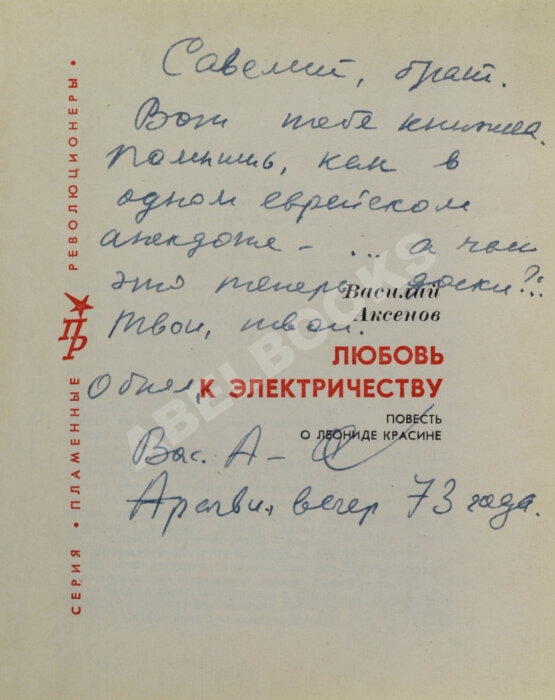 Савелий, брат.
Вот тебе книжка.
Помнишь, как в
одном еврейском
анекдоте - ... а чьи
это теперь доски?!.
Твои, твои.
Обнял,
Вас. А-
вечер 73 года.
Василий
Аксенов
ЛЮБОВЬ
К ЭЛЕКТРИЧЕСТВУ
ПОВЕСТЬ
О ЛЕОНИДЕ КРАСИНЕ
СЕРИЯ • ПЛАМЕННЫЕ РЕВОЛЮЦИОНЕРЫ •
ПР
ABELBOOKS